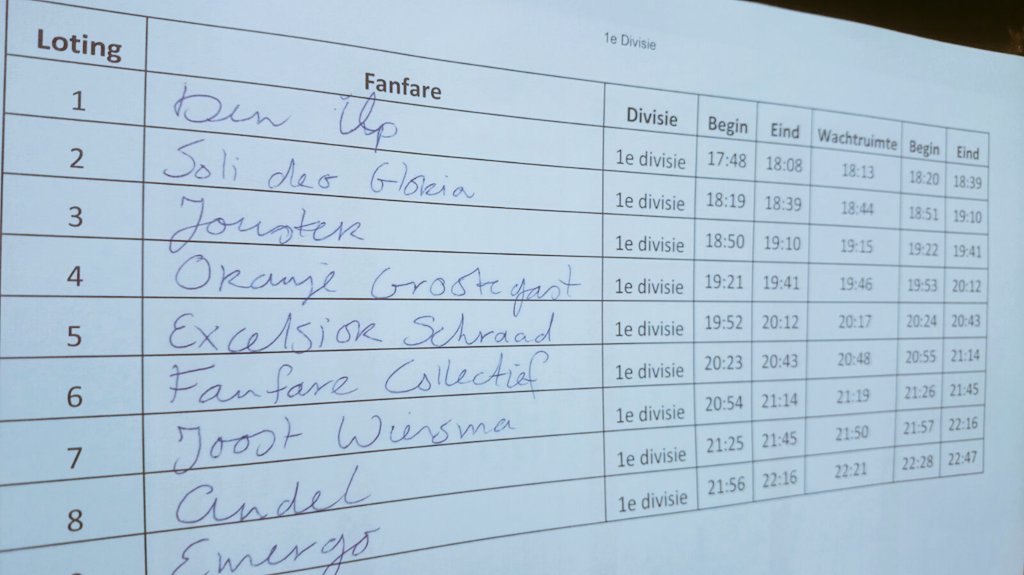 1e Divisie
Loting Fanfare Divisie Begin Eind Wachtruimte Begin Eind
1 Den Ilp 1e divisie 17:48 18:08 18:13 18:20 18:39
2 Soli deo Gloria 1e divisie 18:19 18:39 18:44 18:51 19:10
3 Jouster 1e divisie 18:50 19:10 19:15 19:22 19:41
4 Oranje Grootegast 1e divisie 19:21 19:41 19:46 19:53 20:12
5 Excelsior Schraad 1e divisie 19:52 20:12 20:17 20:24 20:43
6 Fanfare Collectief 1e divisie 20:23 20:43 20:48 20:55 21:14
7 Joost Wiersma 1e divisie 20:54 21:14 21:19 21:26 21:45
8 Andel 1e divisie 21:25 21:45 21:50 21:57 22:16
Emergo 1e divisie 21:56 22:16 22:21 22:28 22:47